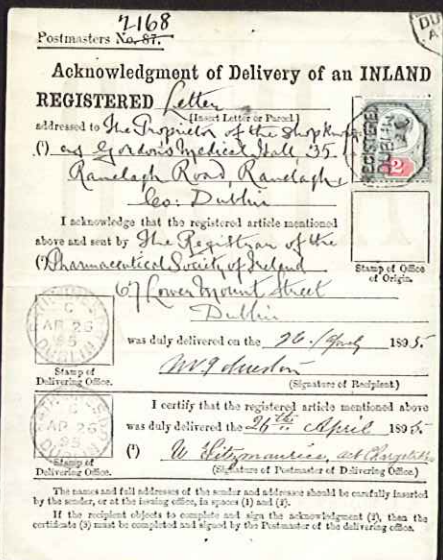 2168
Postmasters No. 87.
Acknowledgment of Delivery of an INLAND
REGISTERED Letter
[Insert Letter or Parcel.]
addressed to The Proprietor of the Shop known
(¹) as Gordon's Medical Hall, 35
Ranelagh Road, Ranelagh,
Co: Dublin
I acknowledge that the registered article mentioned
above and sent by The Registrar of the
(²) Pharmaceutical Society of Ireland
67 Lower Mount Street
Dublin
REGISTERED
DUBLIN
2
Stamp of Office
of Origin.
was duly delivered on the 26 April 1895.
(Signature of Recipient.)
C
AP 26
95
DUBLIN
Stamp of
Delivering Office.
I certify that the registered article mentioned above
was duly delivered the 26th April 1895
(³) W Fitzmaurice,
(Signature of Postmaster of Delivering Office.)
C
AP 26
95
DUBLIN
Stamp of
Delivering Office.
The names and full addresses of the sender and addressee should be carefully inserted
by the sender, or at the issuing office, in spaces (1) and (2).
If the recipient objects to complete and sign the acknowledgment (2), then the
certificate (3) must be completed and signed by the Postmaster of the delivering office.